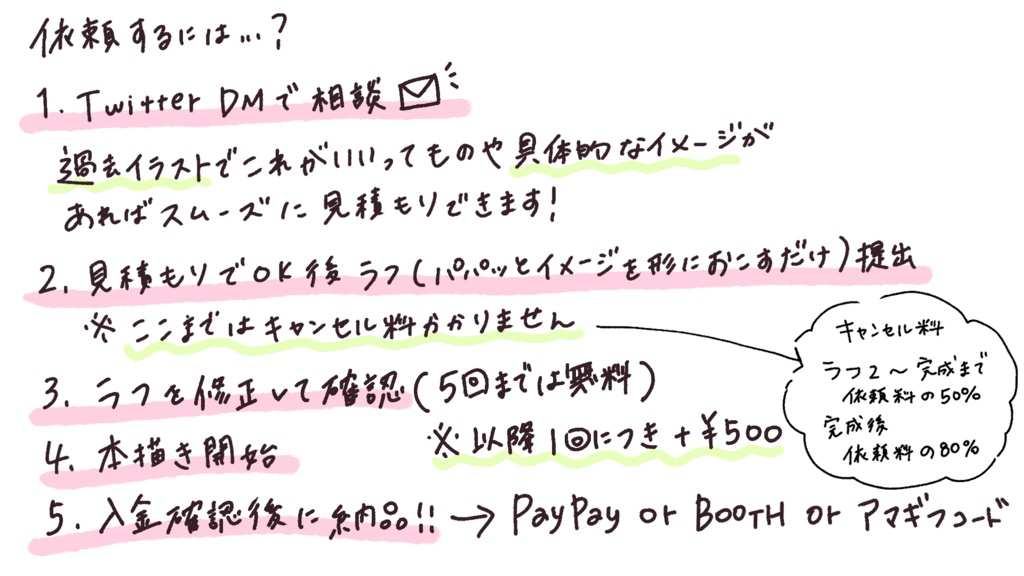 依頼するには…?
1. Twitter DMで相談
過去イラストでこれがいいってものや具体的なイメージが
あればスムーズに見積もりできます!
2. 見積もりでOK後ラフ(パパッとイメージを形におこすだけ)提出
※ここまではキャンセル料かかりません
キャンセル料
ラフ2〜完成まで
依頼料の50%
完成後
依頼料の80%
3. ラフを修正して確認(5回までは無料)
※以降1回につき+¥500
4. 本描き開始
5. 入金確認後に納品!! → PayPay or BOOTH or アマギフコード